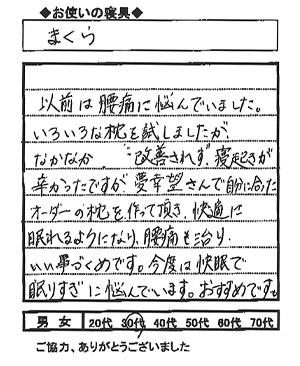 ◆お使いの寝具◆
まくら
以前は腰痛に悩んでいました。
いろいろな枕を試しましたが、
なかなか 改善されず、寝起きが
辛かったですが 夢幸望さんで自分に合った
オーダーの枕を作って頂き、快適に
眠れるようになり、腰痛も治り、
いい事づくめです。今度は快眠で
眠りすぎに悩んでいます。おすすめです。
男 女 20代 30代 40代 50代 60代 70代
ご協力、ありがとうございました